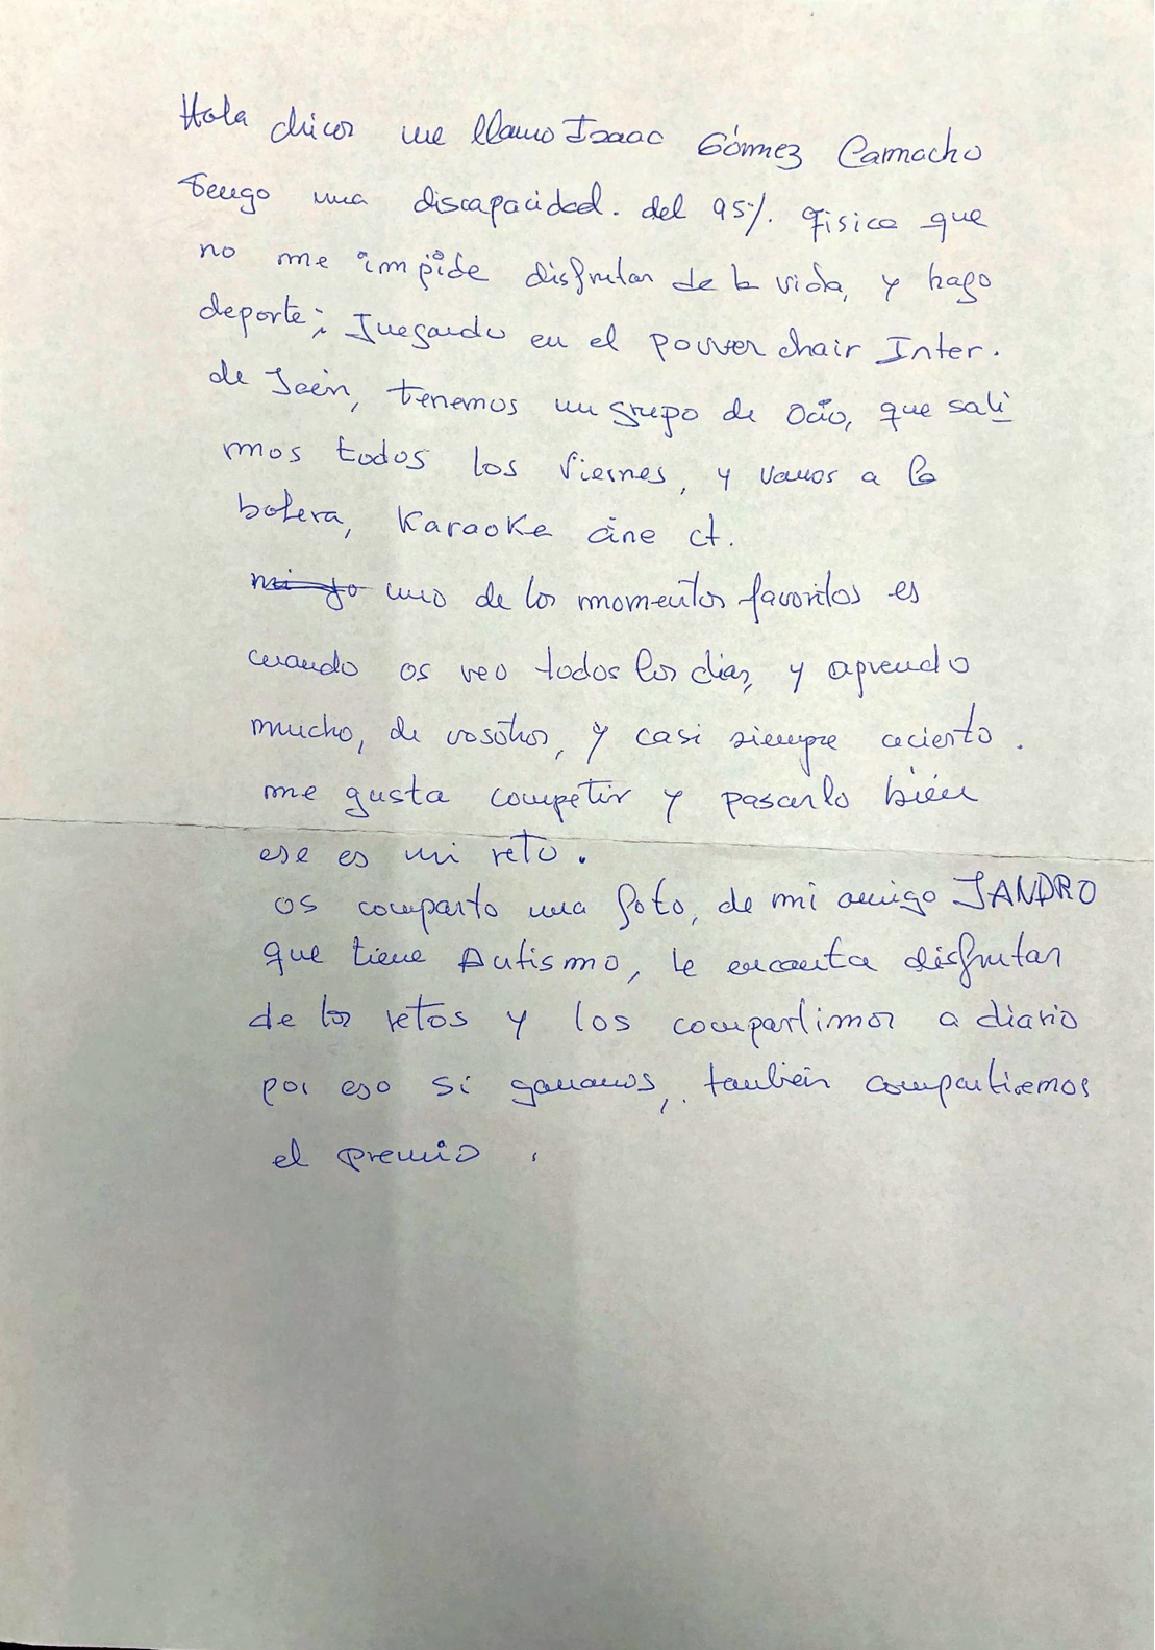 Hola chicos me llamo Isaac Gómez Camacho
tengo una discapacidad. del 95%. fisica que
no me impide disfrutar de la vida, y hago
deporte; Juegando en el powerchair Inter.
de Jaén, tenemos un grupo de ocio, que sali
mos todos los viernes, y vamos a la
bolera, Karaoke cine ct.
uno de los momentos favoritos es
cuando os veo todos los dias, y aprendo
mucho, de vosotros, y casi siempre acierto.
me gusta competir y pasarlo bién
ese es mi reto.
os comparto una foto, de mi amigo JANDRO
que tiene Autismo, le encanta disfrutar
de los retos y los compartimos a diario
por eso si ganamos, también compartiremos
el premio.